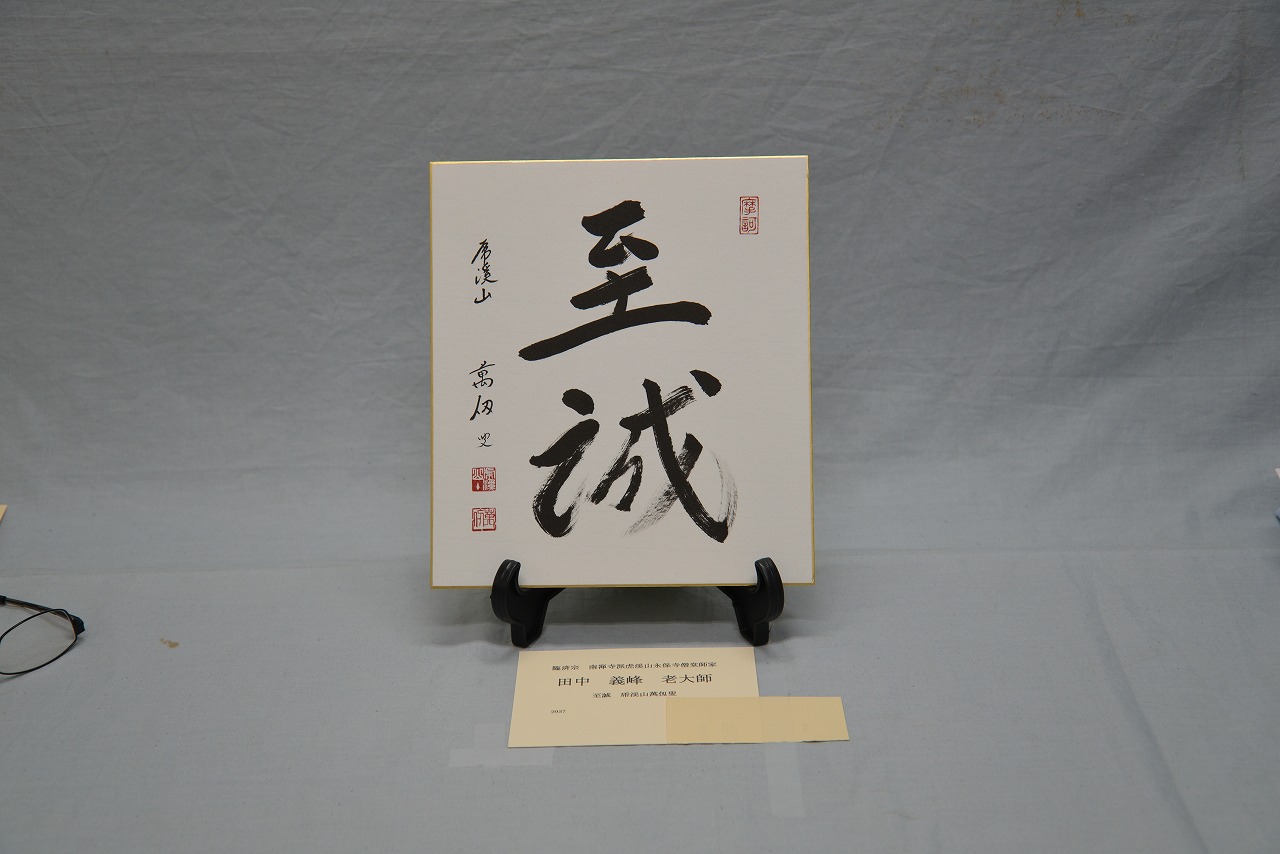 摩訶
至誠
虎溪山 萬仭叟
臨済宗 南禅寺派虎渓山永保寺僧堂師家
田中 義峰 老大師
至誠 虎渓山萬仭叟